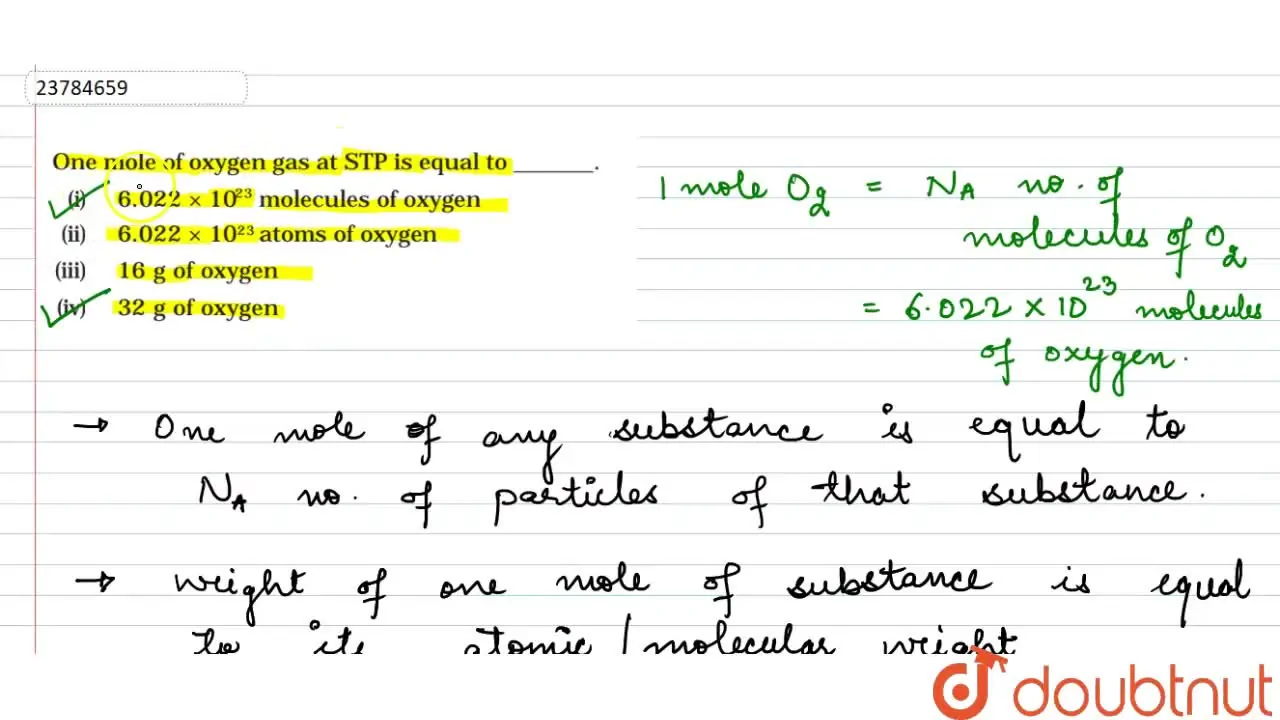 23784659
One mole of oxygen gas at STP is equal to ________.
(i) 6.022 × 10²³ molecules of oxygen
(ii) 6.022 × 10²³ atoms of oxygen
(iii) 16 g of oxygen
(iv) 32 g of oxygen
1 mole O₂ = Nᴀ no. of
molecules of O₂
= 6.022 × 10²³ molecules
of oxygen.
→ One mole of any substance is equal to
Nᴀ no. of particles of that substance.
→ weight of one mole of substance is equal
to its atomic / molecular weight
doubtnut